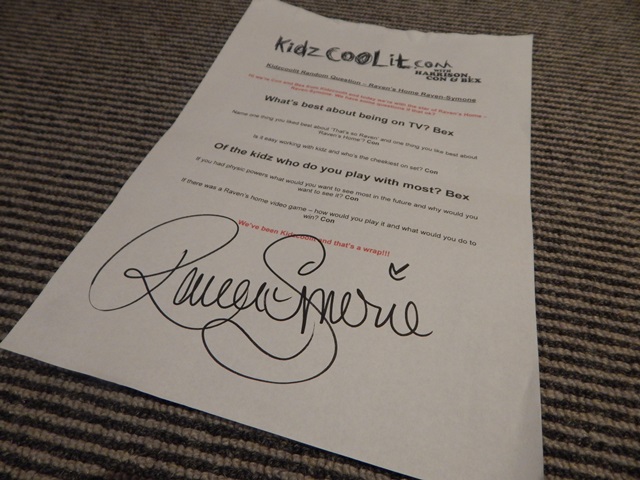 KidzCOOLit.com
WITH
HARRISON,
CON & BEX
Kidzcoolit Random Question – Raven's Home Raven-Symone
Raven-Symone. We have some questions if that ok?
What's best about being on TV? Bex
Name one thing you liked best about 'That's so Raven' and one thing you like best about
Raven's Home'? Con
Is it easy working with kids and who's the cheakiest on set? Con
Of the kidz who do you play with most? Bex
If you had physic powers what would you want to see most in the future and why would you
want to see it? Con
If there was a Raven's home video game – how would you play it and what would you do to
win? Con
We've been Kidzcoolit and that's a wrap!!!
Raven Symone